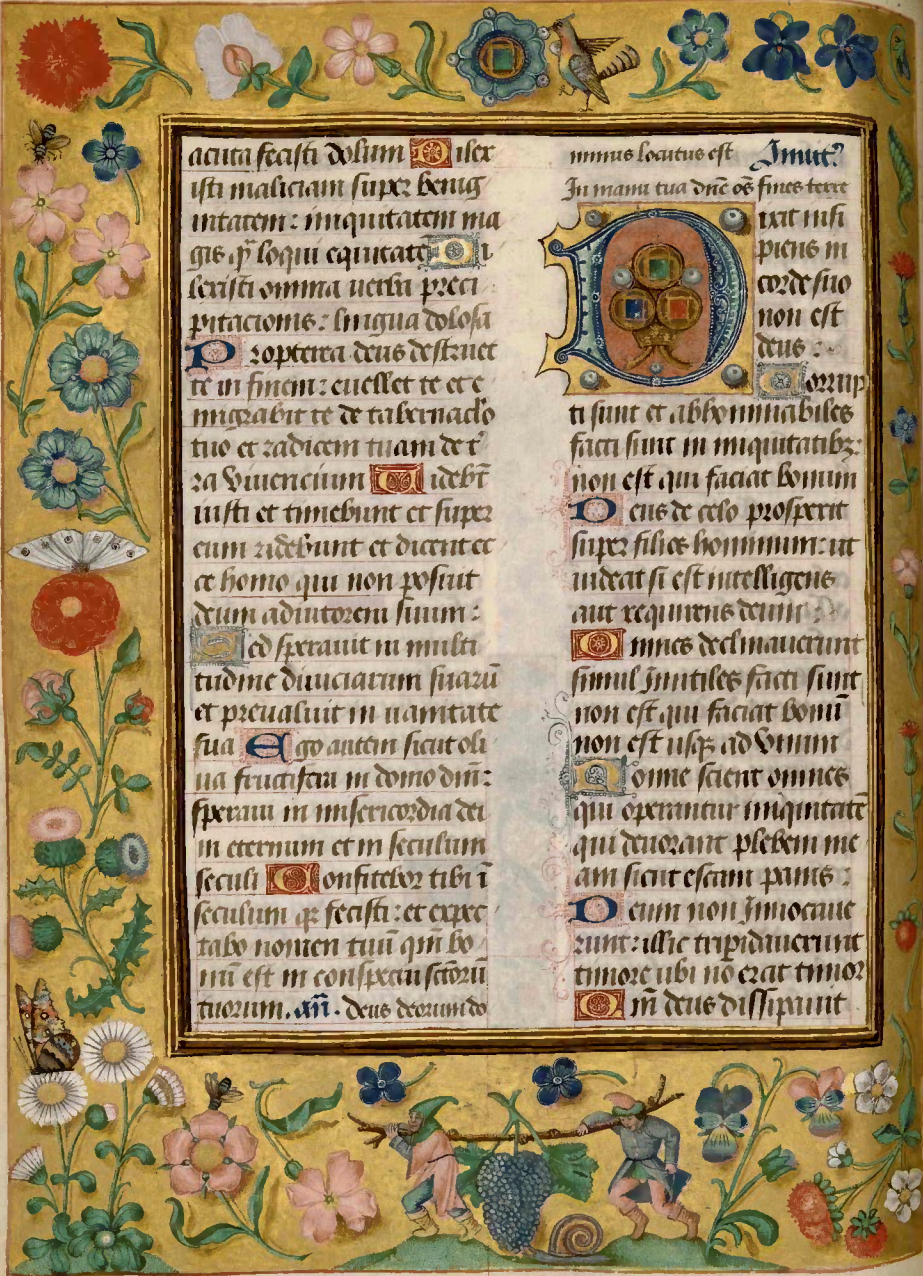 acuta fecisti dolum Dilex
isti maliciam super benig
nitatem: iniquitatem ma
gis q̄ȝ loqui equitatē Di
lexisti omnia uerba preci
pitacionis: lingua dolosa
Proptera deus destruet
te in finem: euellet te et e
migrabit te de tabernac̄lo
tuo et radicem tuam de t̄
ra viuencium Videbūt
iusti et timebunt et super
eum ridebunt et dicent ec
ce homo qui non posuit
deum adiutorem suum:
Sed sperauit in multi
tudine diuiciarum suarū
et preualuit in uanitate
sua Ego autem sicut oli
ua fructifera in domo dn̄i:
speraui in misericordia dei
in eternum et in seculum
seculi Confitebor tibi ī
seculum qȝ fecisti: et expec
tabo nomen tuū qm̄ bo
nū est in conspectu sctōrū
tuorum. an̄. deus deorum do
minus locutus est Inuit̄
In manu tua dn̄e oēs fines terre
Dixit insi
piens in
corde suo
non est
deus:
Corrup
ti sunt et abhominabiles
facti sunt in iniquitatibȝ:
non est qui faciat bonum
Deus de celo prosperit
super filios hominum: ut
uideat si est intelligens
aut requirens deum
Omnes declinauerunt
simul Inutiles facti sunt
non est qui faciat bonū
non est usqȝ ad vnum
Nonne scient omnes
qui operantur iniquitatē
qui deuorant plebem me
am sicut escam panis:
Deum non Inuocaue
runt: illic tripidauerunt
timore ubi no erat timor
Qm̄ deus dissipauit